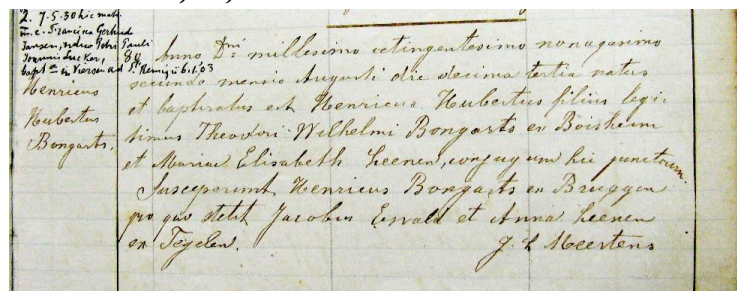 2. 7.5.30 hic matr.
m. c. Francina Gertrud
Jansen, vidua Petri Pauli
Joannis
bapt. in Viersen ad St Remig. 6.1.03
Henricus
Hubertus
Bongarts.
84 Anno Dni millesimo octingentesimo nonagesimo
secundo mensis Augusti die decima tertia natus
et baptizatus est Henricus Hubertus filius legi
timus Theodori Wilhelmi Bongarts ex Boisheim
et Mariae Elisabeth Heenen, conjugum hic punctorum.
Susceperunt Henricus Bongarts ex Bruggen
pro quo stetit Jacobus Ewald et Anna Heenen
ex Tegelen. J. H Meertens